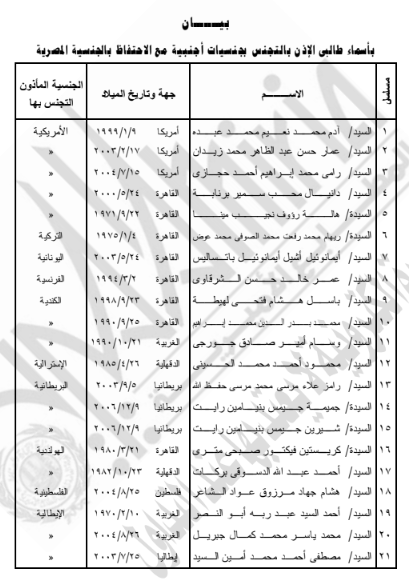 بيـــــان
بأسماء طالبى الإذن بالتجنس بجنسيات أجنبية مع الاحتفاظ بالجنسية المصرية
مسلسل الاســـــم جهة وتاريخ الميلاد الجنسية المأذون التجنس بها
١ السيد/ آدم محمــد نعــيم محمــد عبــده أمريكا ١٩٩٩/١/٩ الأمريكية
٢ السيد/ عمار حسن عبد الظاهر محمد زيــدان أمريكا ٢٠٠٣/٢/١٧ »
٣ السيد/ رامى محمد إبراهيم أحمــد حجــازى أمريكا ٢٠٠٤/٧/١٥ »
٤ السيد/ دانيــال محــب ســمير برنابــة القاهرة ٢٠٠٠/٥/٢٤ »
٥ السيدة/ هالــة رؤوف نجيــب مينــا القاهرة ١٩٧١/٩/٢٢ »
٦ السيدة/ ريهام محمد رفعت محمد الصوفى محمد عوض القاهرة ١٩٧٥/١/٤ التركية
٧ السيد/ أيمانوئيل أشيل أيمانوئيل باتساليس القاهرة ٢٠٠٣/٥/٢٤ اليونانية
٨ السيد/ عمــر خالــد حســن الــشرقاوى القاهرة ١٩٩٤/٣/٢ الفرنسية
٩ السيد/ باســل هــشام فتحــى لهيطة القاهرة ١٩٩٨/٩/٢٣ الكندية
١٠ السيد/ محمــد بــدر الــدين محمــد إبــراهيم القاهرة ١٩٩٠/٩/٢٥ »
١١ السيد/ وســام أميــر صــادق جــورجى الغربية ١٩٩٠/١٠/٢١ »
١٢ السيد/ محمــود أحمــد محمــد الحــسينى الدقهلية ١٩٨٥/٤/٢٦ الإسترالية
١٣ السيد/ رامز علاء مرسى محمد مرسى حفظ الله بريطانيا ٢٠٠٣/٩/٥ البريطانية
١٤ السيدة/ جميمــة جــيمس بنيــامين رايــت بريطانيا ٢٠٠٦/١٢/٩ »
١٥ السيدة/ شــيرين جــيمس بنيــامين رايــت بريطانيا ٢٠٠٦/١٢/٩ »
١٦ السيدة/ كريــستين فيكتــور صــبحى متــرى القاهرة ١٩٨٠/٣/٢١ الهولندية
١٧ السيد/ أحمــد عبــد الله الدســوقى بركــات الدقهلية ١٩٨٢/١٠/٢٣ »
١٨ السيد/ هشام جهاد مــرزوق عــواد الــشاعر فلسطين ٢٠٠٤/٨/٢٥ الفلسطينية
١٩ السيد/ أحمد السيد عبــد ربــه أبــو النــصر الغربية ١٩٧٠/٢/١٠ الإيطالية
٢٠ السيد/ محمد ياســر محمــد كمــال جبريــل الغربية ٢٠٠٤/٨/٢٦ »
٢١ السيد/ مصطفى أحمــد محمــد أمــين الــسيد إيطاليا ٢٠٠٣/٧/٢٥ »